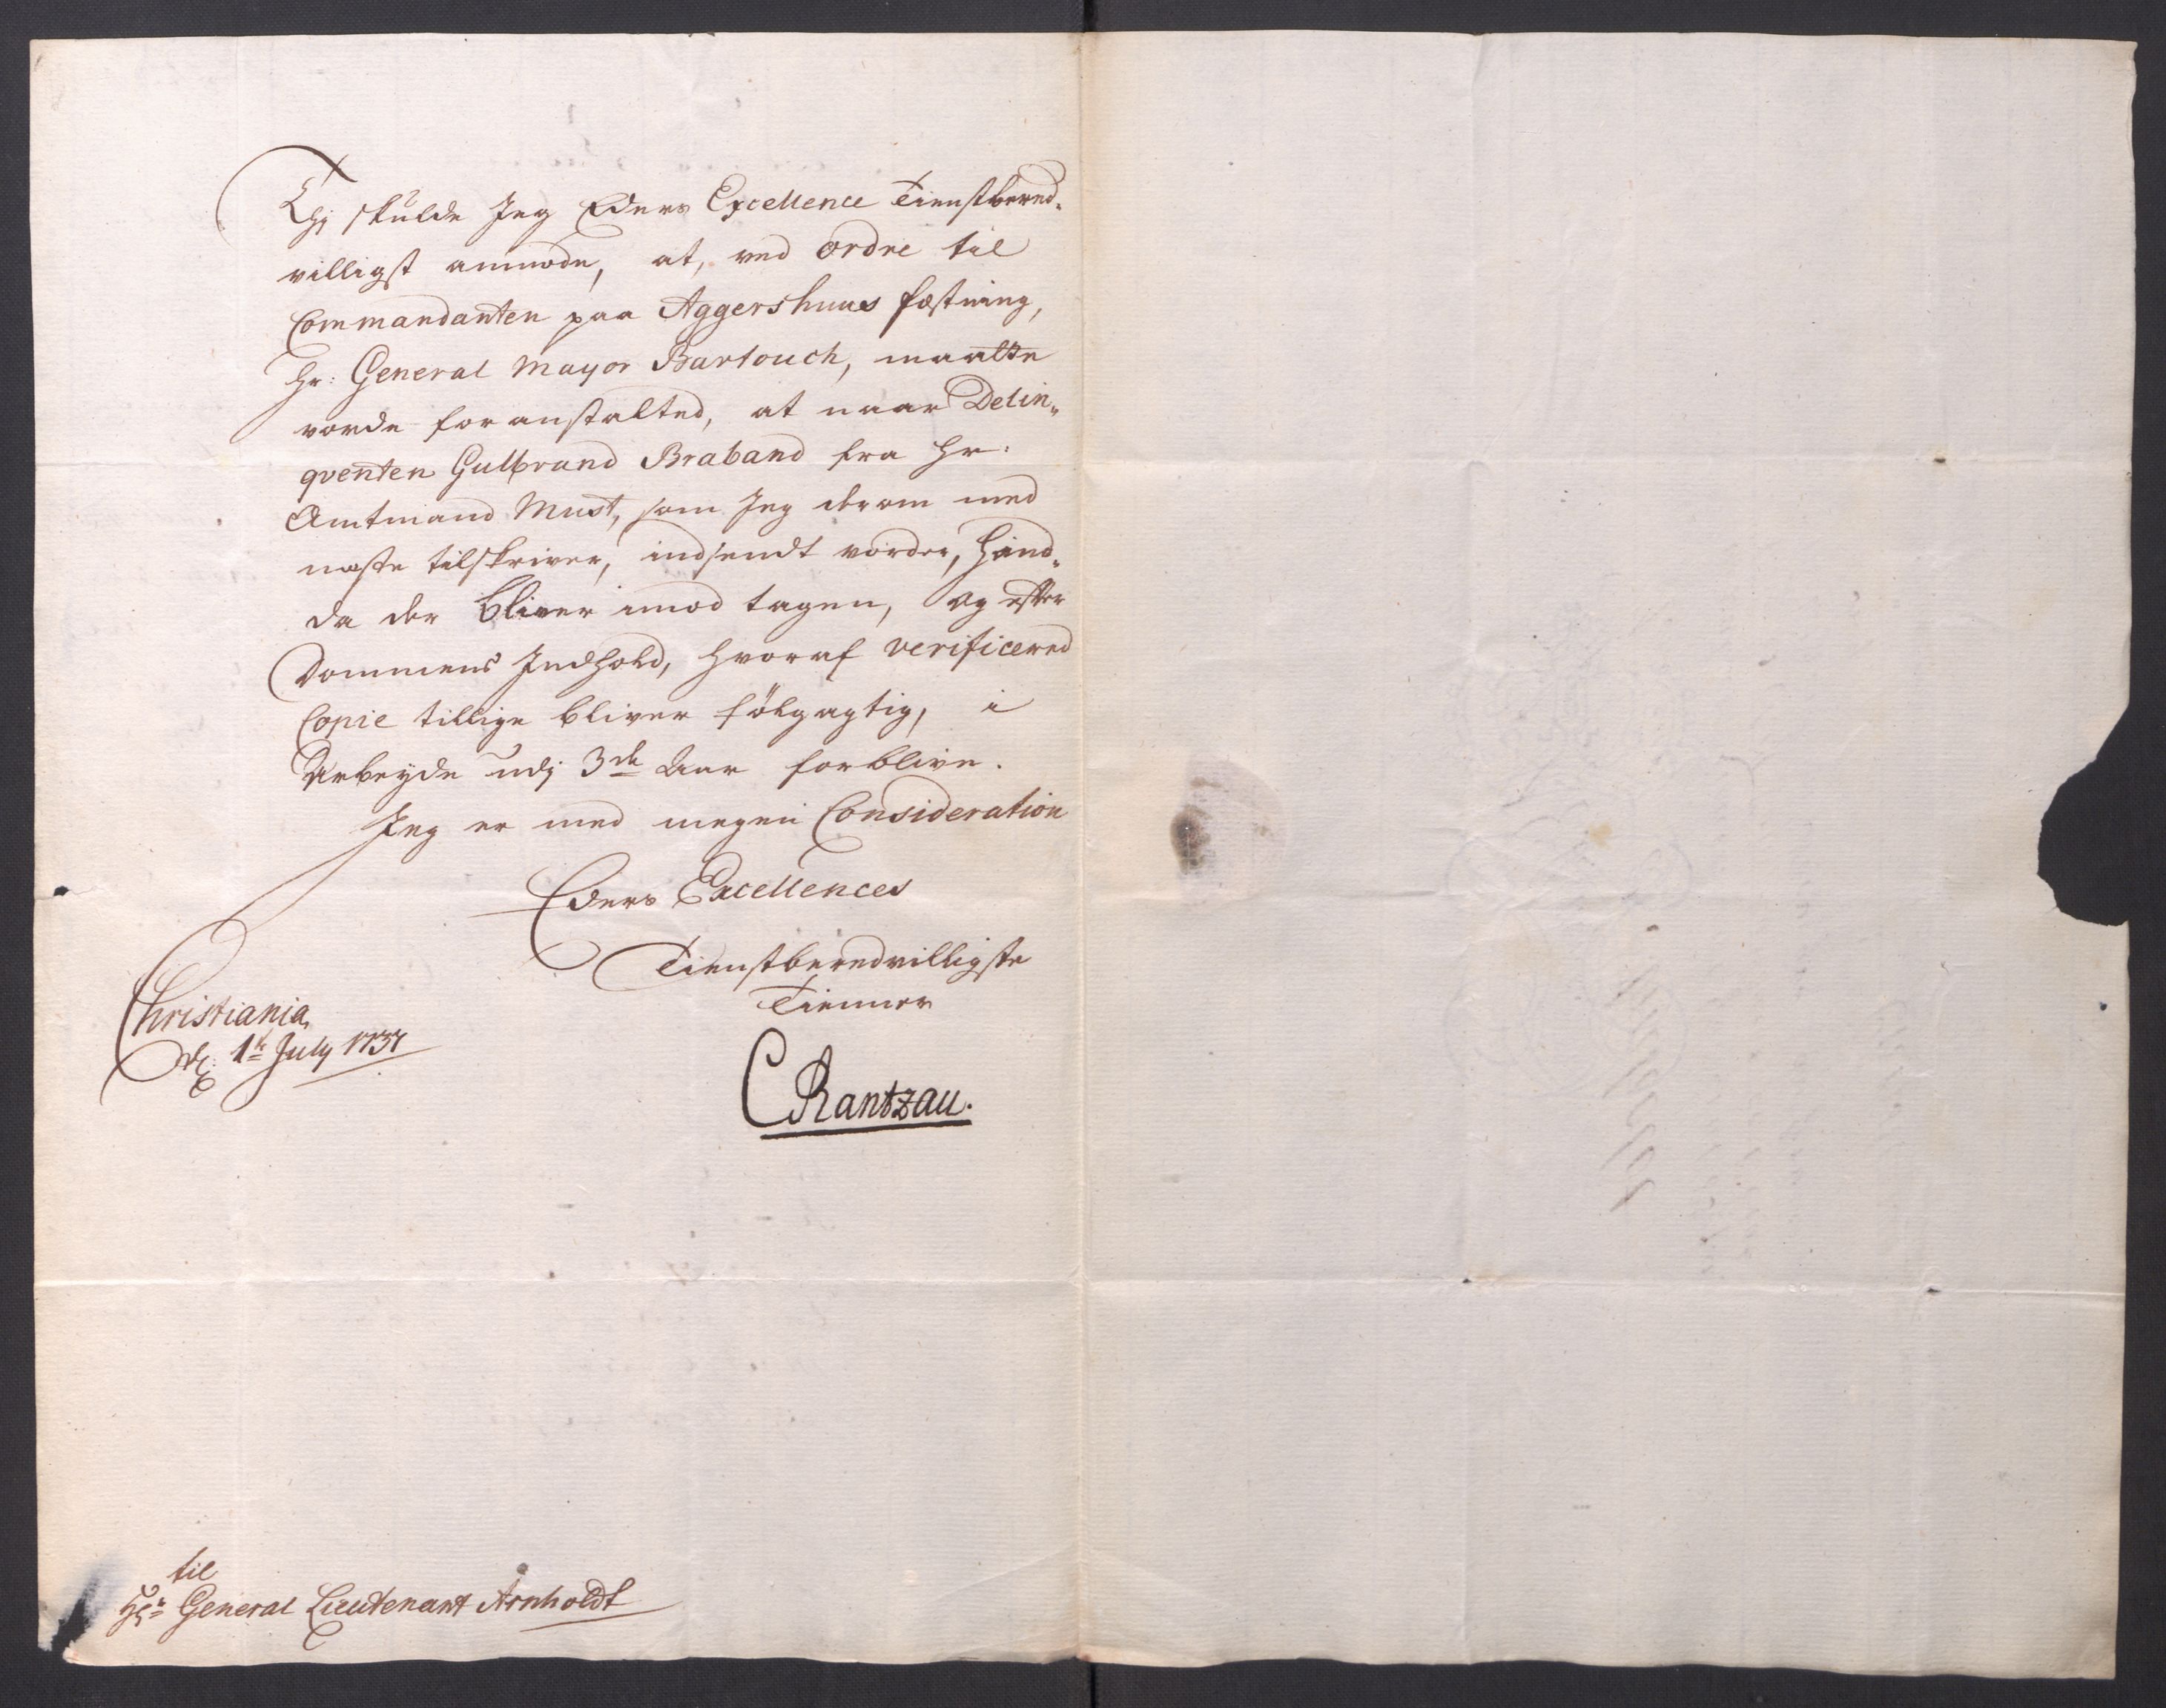 Thj skulde Jeg Eders Excellence Tienstbered-
villigst anmode, at, ved ordre til
Commandanten paa Aggershuus fæstning,
Hr: General Mayor Bartouch, maatte
vorde foranstalted, at naar Delin-
qventen Gulbrand Braband fra Hr:
Amtmand Must, som Jeg derom med
næste tilskriver, indsendt vorder, hand
da der bliver imod tagen, og efter
Dommens Indhold, hvoraf verificered
Copie tillige bliver følgagtig, i
Arbeyde udj 3de Aar forblive.
Jeg er med megen Consideration
Eders Excellences
Tienstberedvilligste
Tienner
Christiania,
d: 1te July 1737
CRantzau.
til
Hr: General Lieutenant Arnholdt